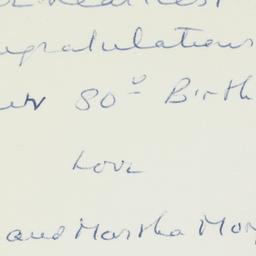 r heartiest
ongratulations
our 80th Birth
Love
and Martha Mor